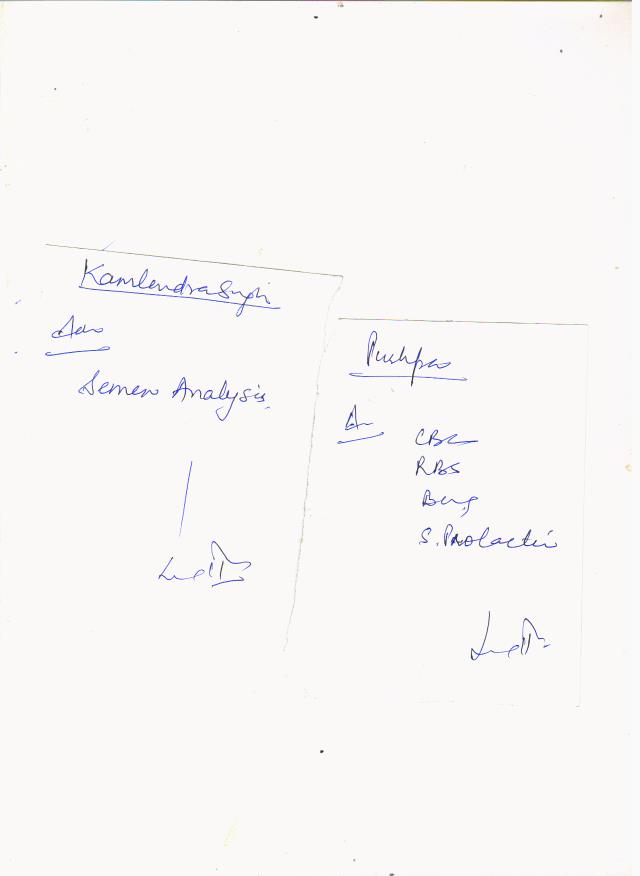 Kamlendra Singh
Adv
Semen Analysis
Pushpa
Adv
CBC
RBS
S. Prolactin